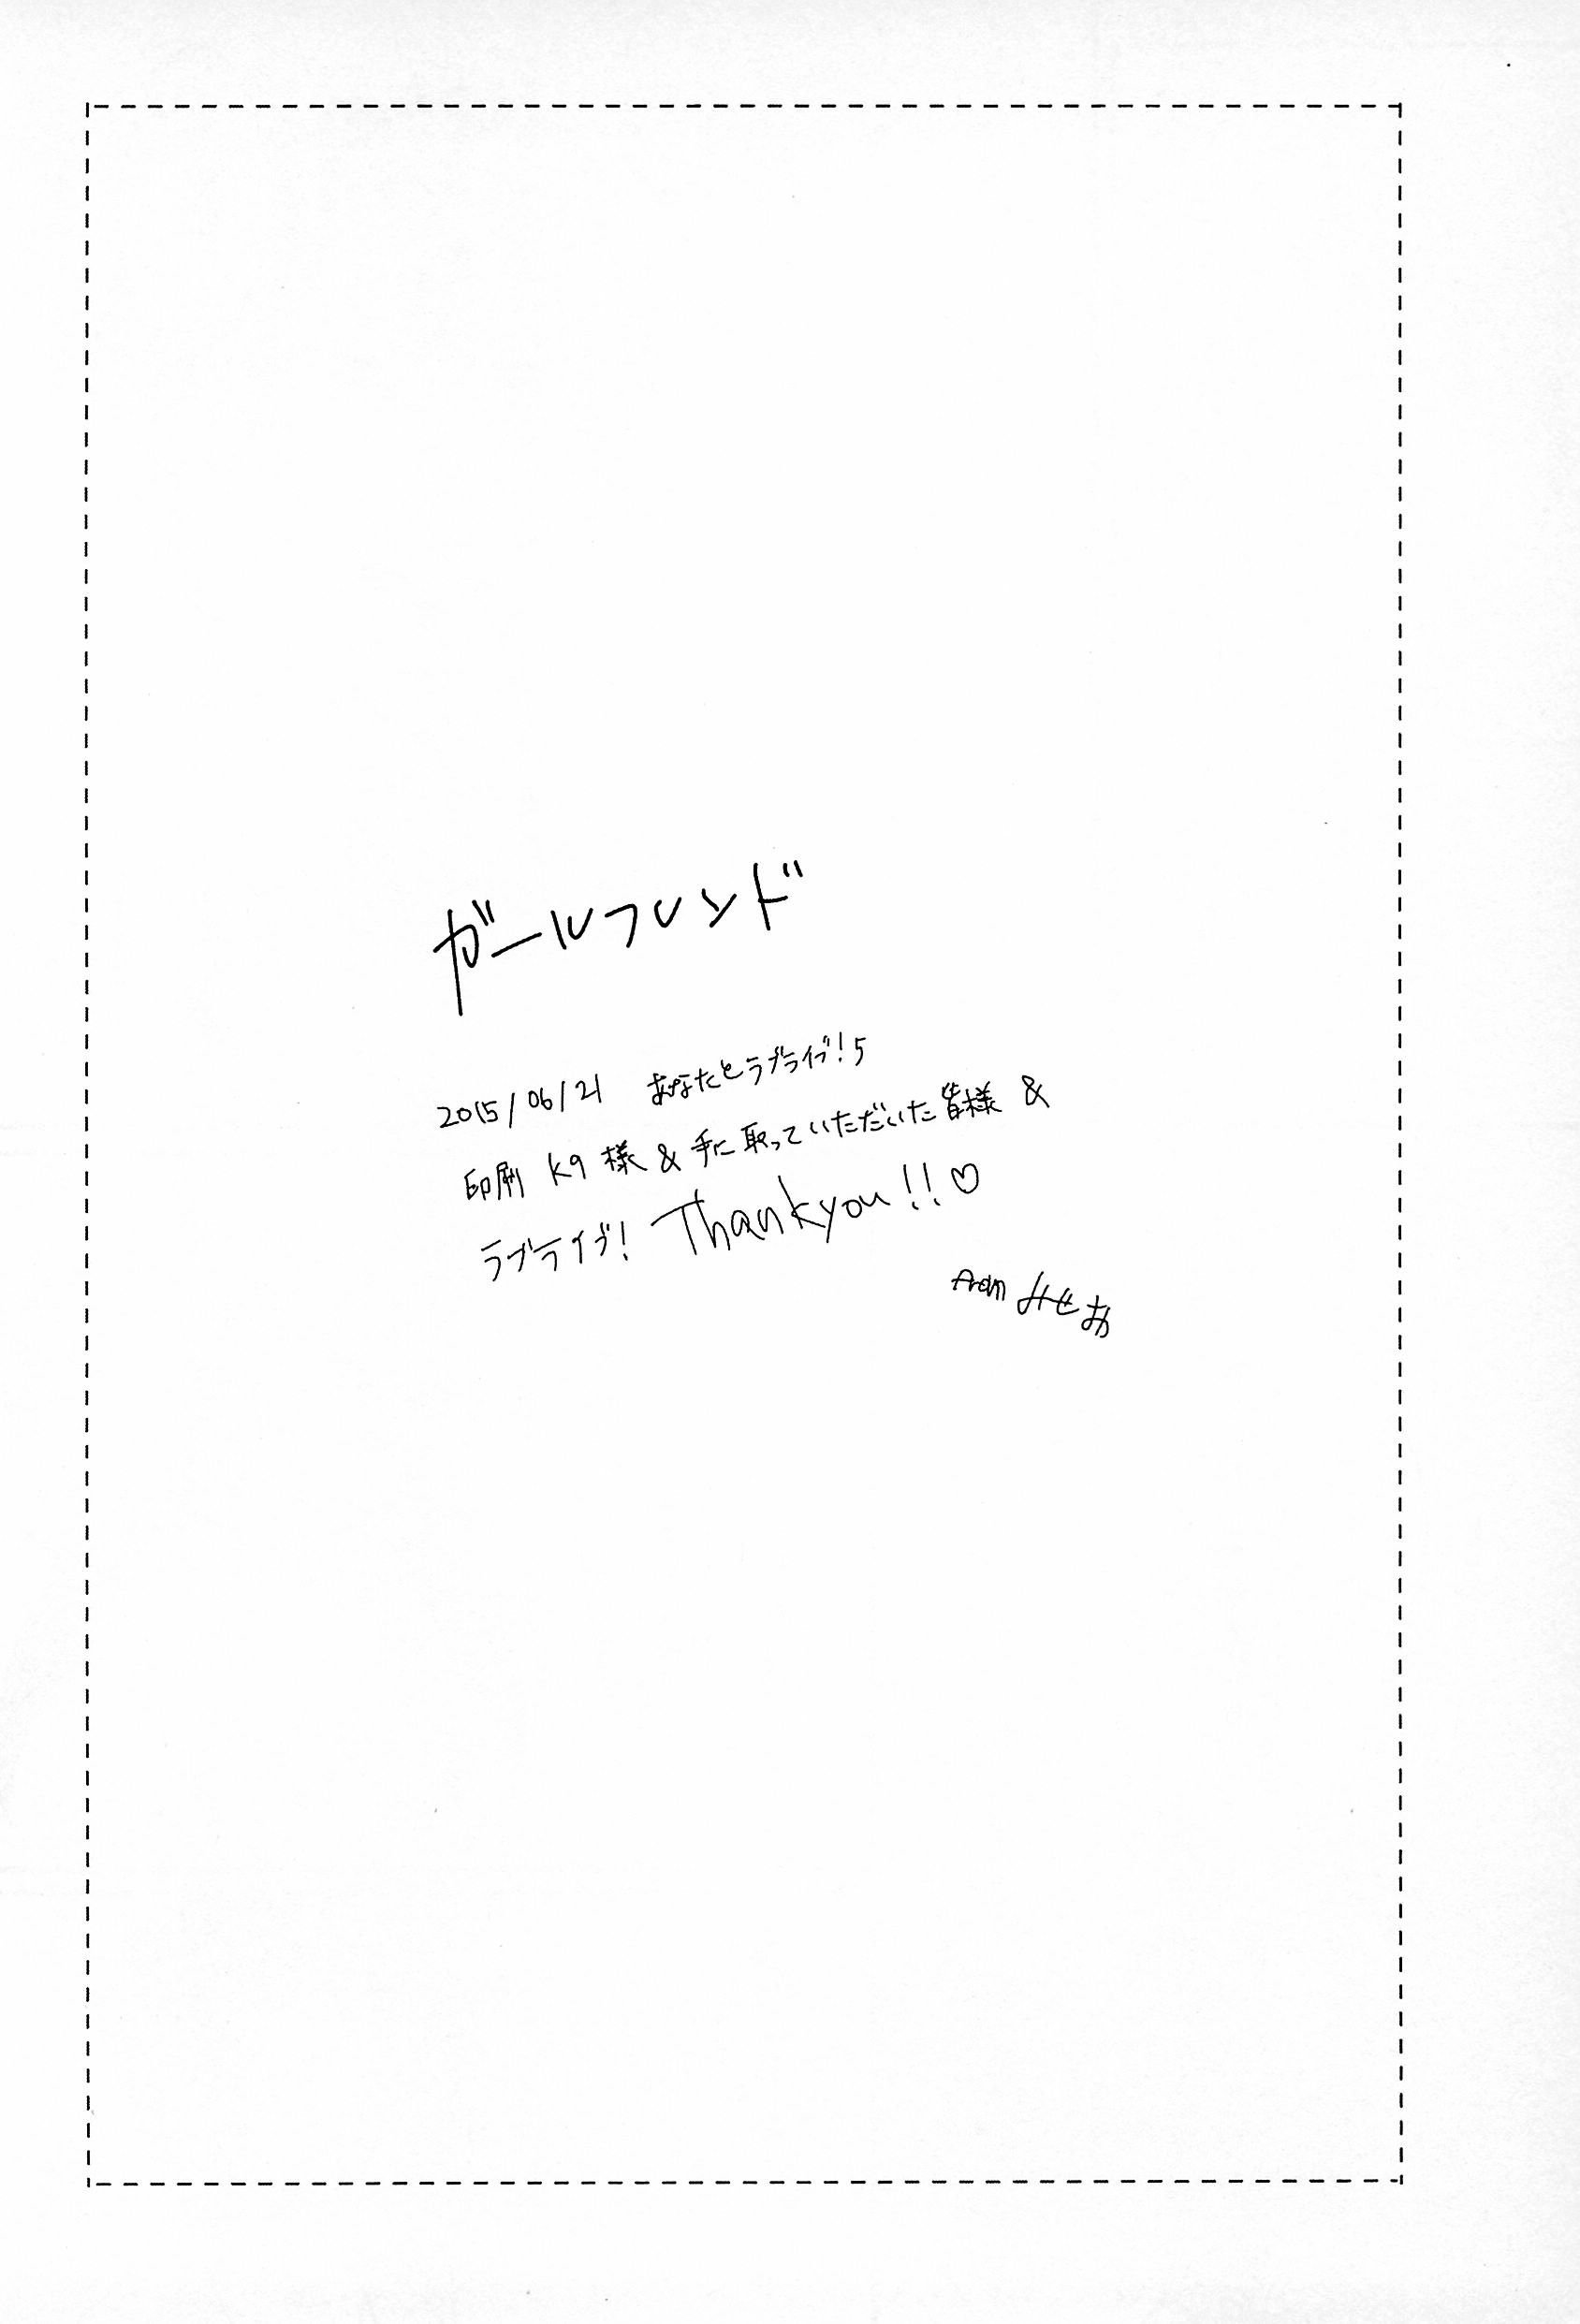 ガールフレンド
2015/06/21 あなたとラブライブ!5
印刷 K9様 & 手に取っていただいた皆様 &
ラブライブ! Thankyou!!♡
from みせお